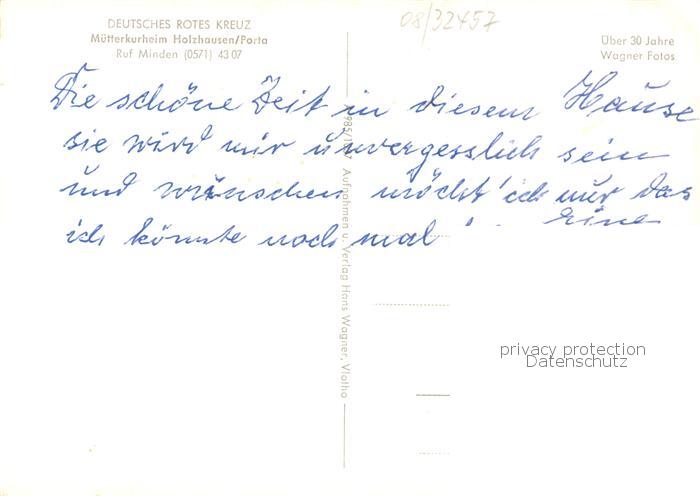 08/32457
DEUTSCHES ROTES KREUZ
Mütterkurheim Holzhausen/Porta
Ruf Minden (0571) 43 07
Über 30 Jahre
Wagner Fotos
Die schöne Zeit in diesem Hause
sie wird mir unvergesslich sein
und wünschen möcht' ich nur das
ich könnte noch mal rein
Aufnahmen u. Verlag Hans Wagner, Vlotho
privacy protection
Datenschutz